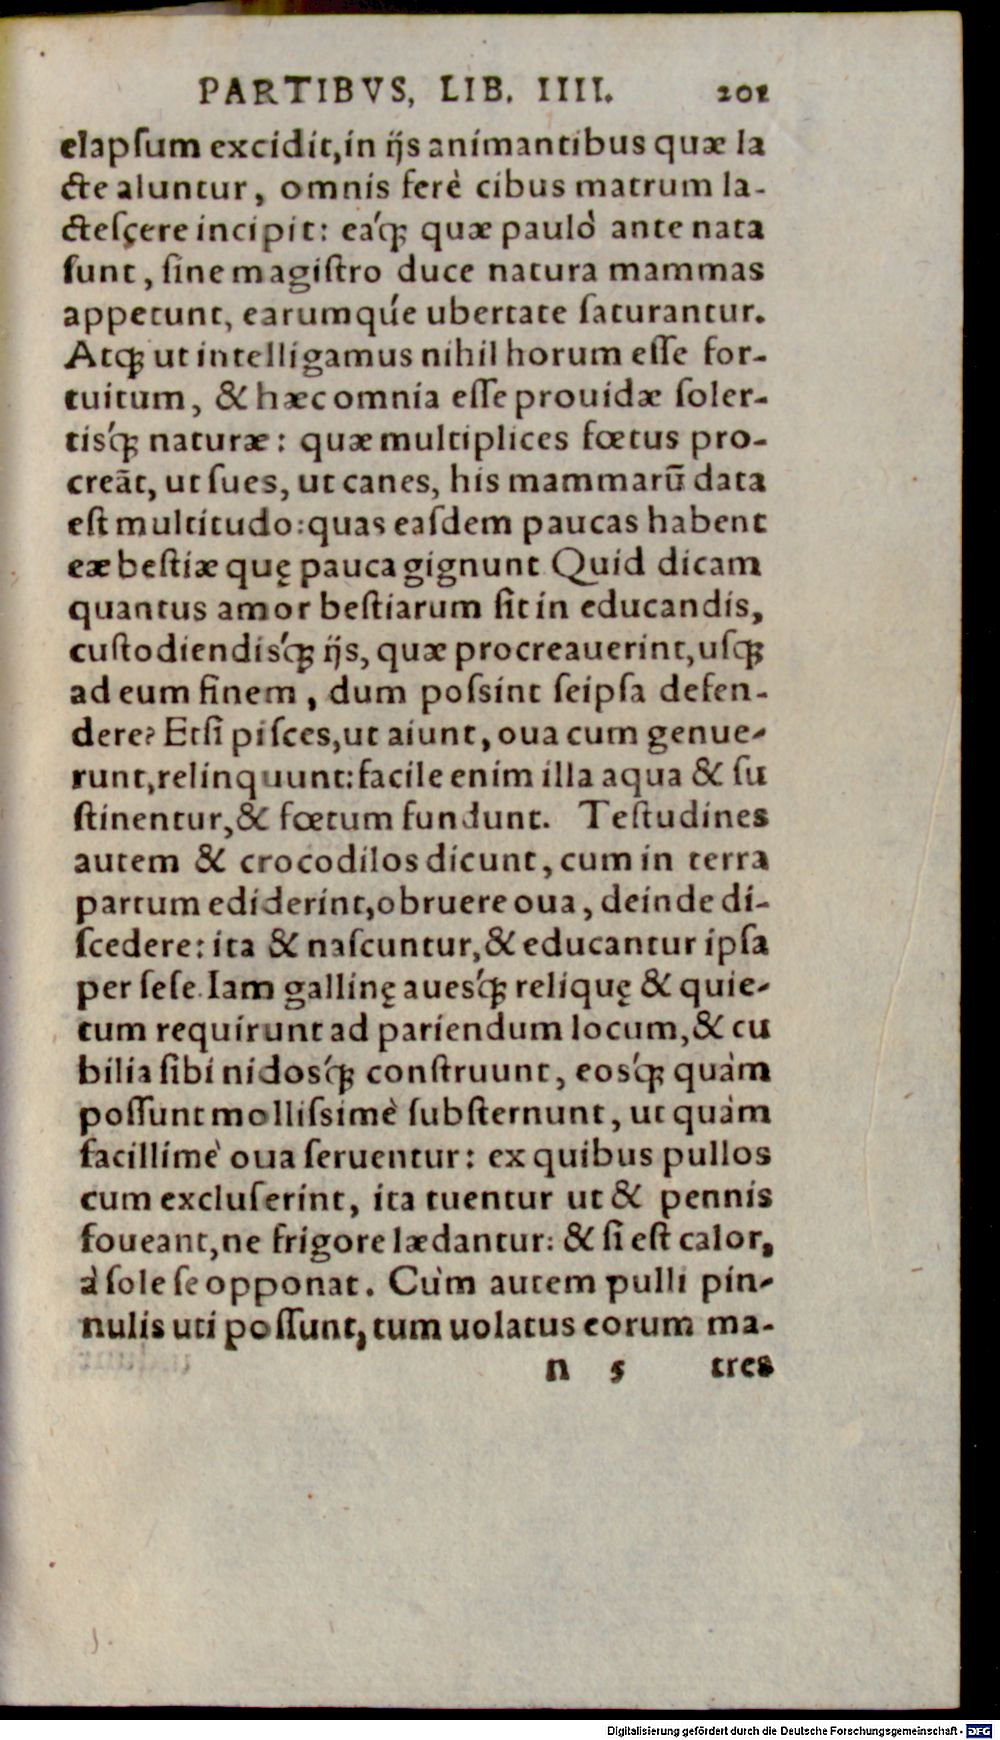 PARTIBVS, LIB. IIII. 201
elapſum excidit, in ijs animantibus quæ la
cte aluntur, omnis ferè cibus matrum la-
cteſçere incipit: eáq; quæ paulò ante nata
ſunt, ſine magiſtro duce natura mammas
appetunt, earumqúe ubertate ſaturantur.
Atq; ut intelligamus nihil horum eſſe for-
tuitum, & hæc omnia eſſe prouidæ ſoler-
tisq́; naturæ: quæ multiplices fœtus pro-
creāt, ut ſues, ut canes, his mammarū data
eſt multitudo: quas eaſdem paucas habent
eæ beſtiæ quę pauca gignunt Quid dicam
quantus amor beſtiarum ſit in educandis,
cuſtodiendisq́; ijs, quæ procreauerint, uſq;
ad eum finem, dum poſsint ſeipſa defen-
dere? Etſi piſces, ut aiunt, oua cum genue-
runt, relinquunt: facile enim illa aqua & ſu
ſtinentur, & fœtum fundunt. Teſtudines
autem & crocodilos dicunt, cum in terra
partum ediderint, obruere oua, deinde di-
ſcedere: ita & naſcuntur, & educantur ipſa
per ſeſe. Iam gallinę auesq́; reliquę & quie-
tum requirunt ad pariendum locum, & cu
bilia ſibi nidosq́; conſtruunt, eosq́; quàm
poſſunt molliſsimè ſubſternunt, ut quàm
facillimè oua ſeruentur: ex quibus pullos
cum excluſerint, ita tuentur ut & pennis
foueant, ne frigore lædantur: & ſi eſt calor,
à ſole ſe opponat. Cùm autem pulli pin-
nulis uti poſſunt, tum uolatus eorum ma-
n 5 tres
Digitalisierung gefördert durch die Deutsche Forschungsgemeinschaft - DFG